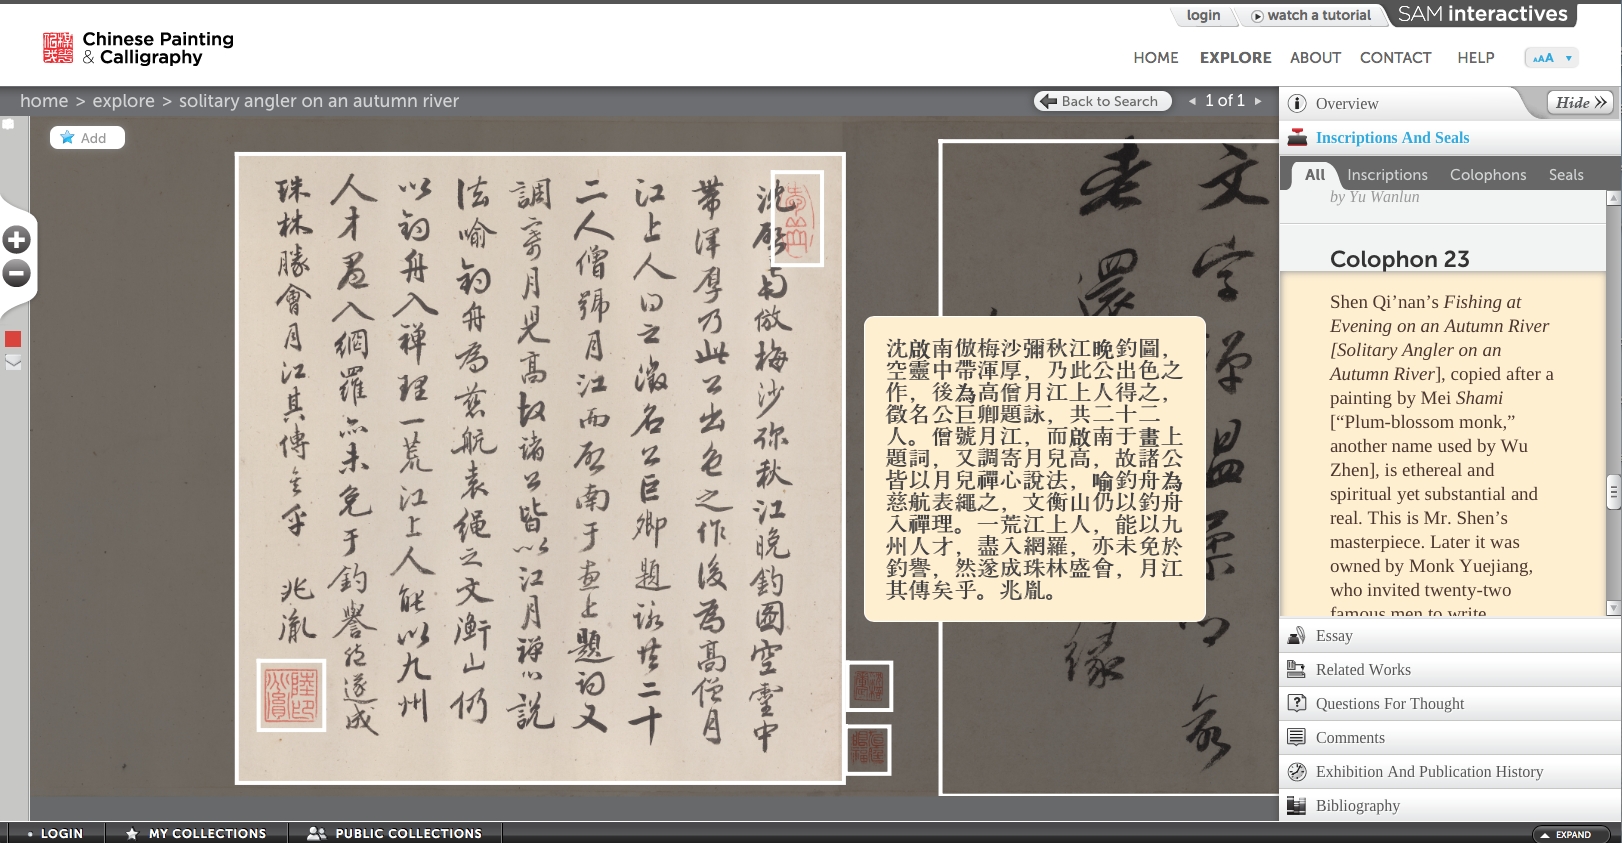 login
watch a tutorial
SAM interactives
Chinese Painting
& Calligraphy
HOME
EXPLORE
ABOUT
CONTACT
HELP
AAA
home > explore > solitary angler on an autumn river
Back to Search
1 of 1
Add
沈啟南倣梅沙弥秋江晚釣图空靈中
帶渾厚乃此公出色之作後為高僧月
江上人得之徵名公巨卿題詠共二十
二人僧號月江而啟南于畫上題詞又
調寄月兒高故諸公皆以江月禅心説
法喻釣舟為慈航表繩之文衡山仍
以釣舟入禅理一荒江上人能以九州
人才盡入網羅亦未免于釣譽然遂成
珠林勝會月江其傳矣乎 兆胤
沈啟南倣梅沙彌秋江晚釣圖，
空靈中帶渾厚，乃此公出色之
作，後為高僧月江上人得之，
徵名公巨卿題詠，共二十二
人。僧號月江，而啟南于畫上
題詞，又調寄月兒高，故諸公
皆以月兒禪心說法，喻釣舟為
慈航表繩之，文衡山仍以釣舟
入禪理。一荒江上人，能以九
州人才，盡入網羅，亦未免於
釣譽，然遂成珠林盛會，月江
其傳矣乎。兆胤。
Overview
Hide
Inscriptions And Seals
All
Inscriptions
Colophons
Seals
by Yu Wanlun
Colophon 23
Shen Qi’nan’s Fishing at
Evening on an Autumn River
[Solitary Angler on an
Autumn River], copied after a
painting by Mei Shami
[“Plum-blossom monk,”
another name used by Wu
Zhen], is ethereal and
spiritual yet substantial and
real. This is Mr. Shen’s
masterpiece. Later it was
owned by Monk Yuejiang,
who invited twenty-two
famous men to write
Essay
Related Works
Questions For Thought
Comments
Exhibition And Publication History
Bibliography
LOGIN
MY COLLECTIONS
PUBLIC COLLECTIONS
EXPAND